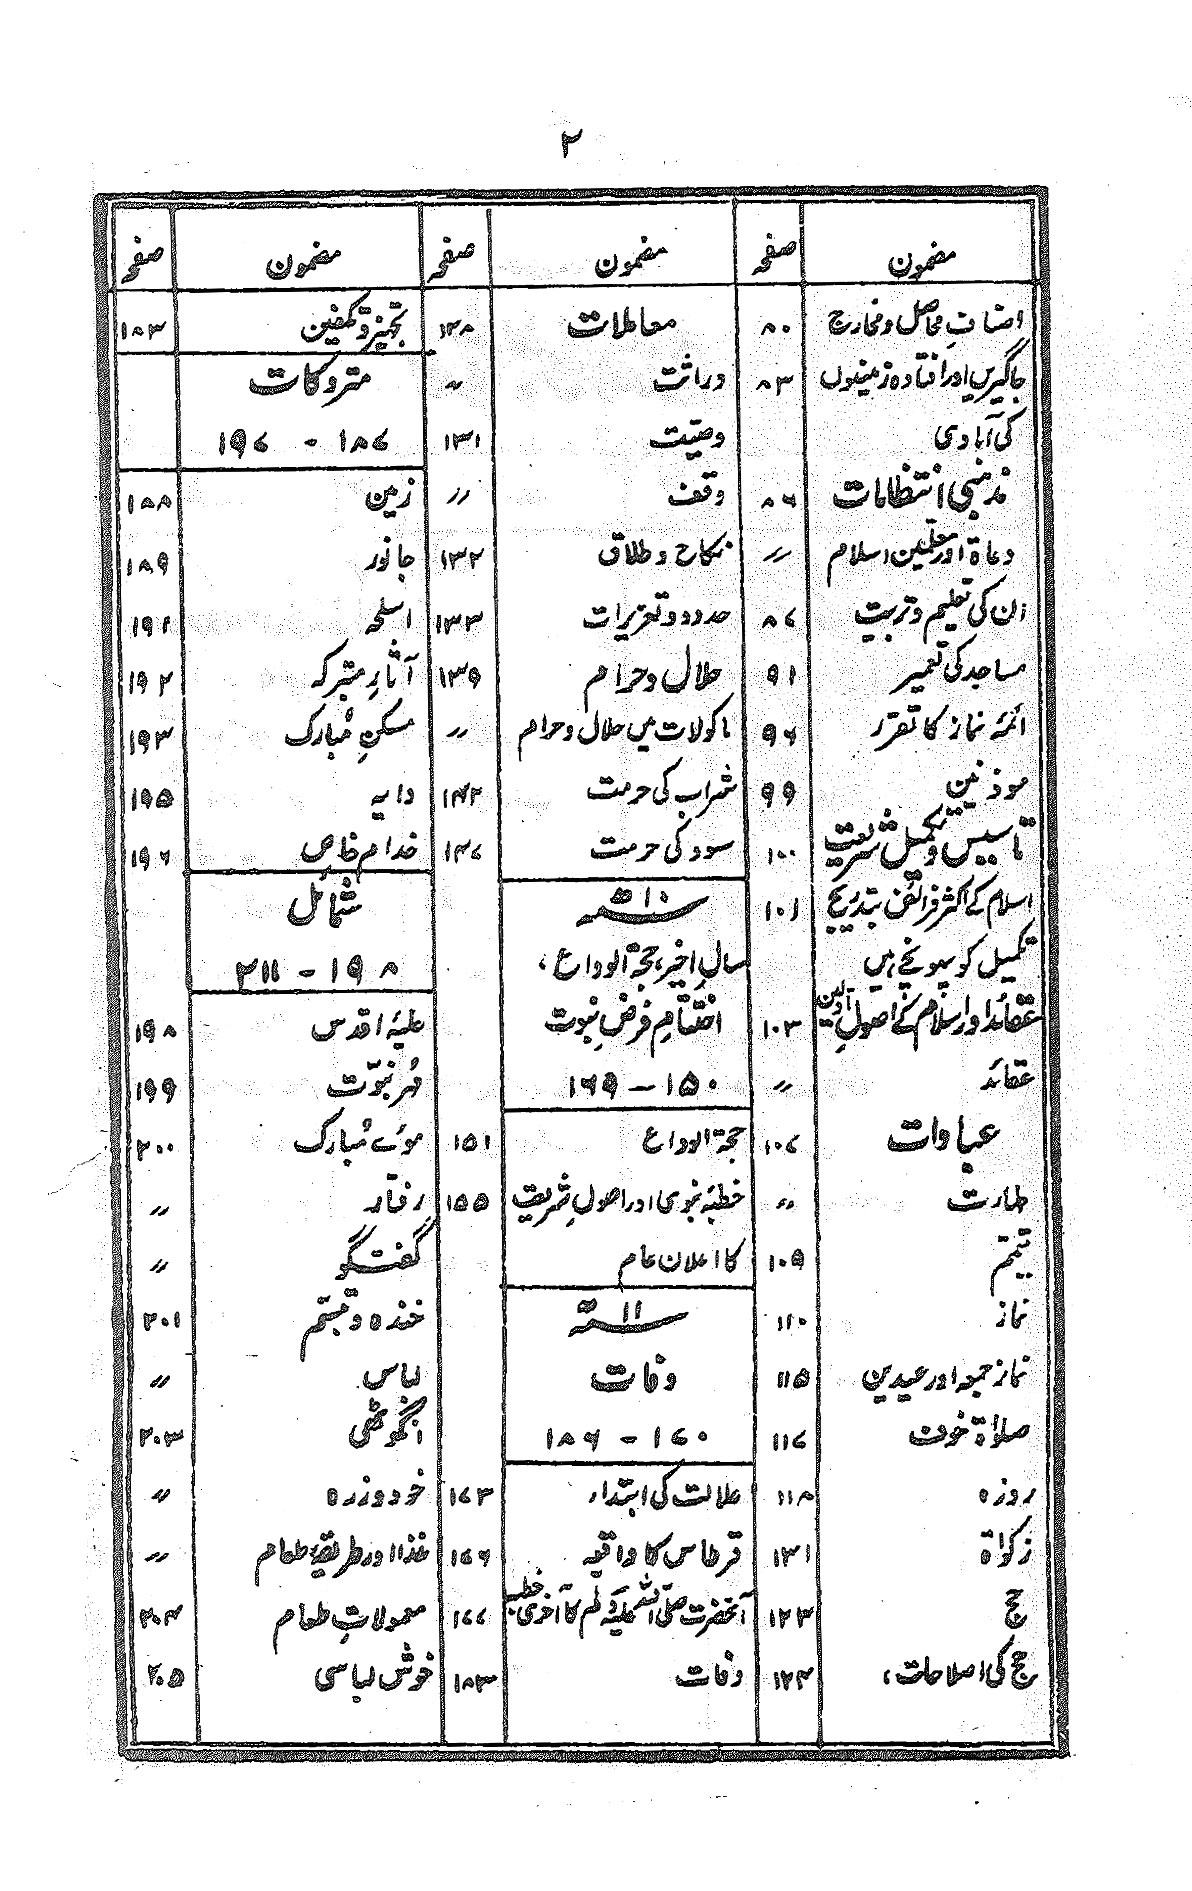 ۲
مضمون صفحہ
اصنافِ محاصل و مخارج ۸۰
جاگیریں اور افتادہ زمینوں ۸۳
کی آبادی
مذہبی انتظامات ۸۶
دعاۃ اور معلمین اسلام ״
ان کی تعلیم و تربیت ۸۷
مساجد کی تعمیر ۹۱
ائمۂ نماز کا تقرر ۹۶
موذنین ۹۹
تاسیس و تکمیل شریعت ۱۰۰
اسلام کے اکثر فرائض بتدریج ۱۰۱
تکمیل کو پہونچے ہیں
عقائد اور اسلام کے اصولِ اولین ۱۰۳
عقائد ״
عبادات ۱۰۷
طہارت ״
تیمّم ۱۰۹
نماز ۱۱۰
نماز جمعہ اور عیدین ۱۱۵
صلوٰۃ خوف ۱۱۷
روزہ ۱۱۸
زکواۃ ۱۲۱
حج ۱۲۳
حج کی اصلاحات، ۱۲۴
مضمون صفحہ
معاملات ۱۲۸
وراثت ״
وصیّت ۱۳۱
وقف ״
نکاح و طلاق ۱۳۲
حدود و تعزیرات ۱۳۳
حلال و حرام ۱۳۹
ماکولات میں حلال و حرام ״
شراب کی حرمت ۱۴۲
سود کی حرمت ۱۴۷
سنہ ۱۰ھ
سالِ اخیر، حجۃ الوداع،
اختتامِ فرضِ نبوت
۱۵۰ - ۱۶۹
حجۃ الوداع ۱۵۱
خطبۂ نبوی اور اصولِ شریعت ۱۵۵
کا اعلان عام
سنہ ۱۱ھ
وفات
۱۷۰ - ۱۸۶
علالت کی ابتداء ۱۷۳
قرطاس کا واقعہ ۱۷۶
آنحضرت صلی اللہ علیہ وسلم کا آخری خطبہ ۱۷۷
وفات ۱۸۳
مضمون صفحہ
تجہیز و تکفین ۱۸۳
متروکات
۱۸۷ - ۱۹۷
زمین ۱۸۸
جانور ۱۸۹
اسلحہ ۱۹۱
آثارِ متبرکہ ۱۹۲
مسکنِ مُبارک ۱۹۳
دایہ ۱۹۵
خدام خاص ۱۹۶
شمائل
۱۹۸ - ۲۱۱
حلیۂ اقدس ۱۹۸
مُہر نبوّت ۱۹۹
موئے مُبارک ۲۰۰
رفتار ״
گفتگو ״
خندہ و تبسّم ۲۰۱
لباس ״
انگوٹھی ۲۰۳
خود و زرہ ״
غذا اور طریقۂ طعام ״
معمولاتِ طعام ۲۰۴
خوش لباسی ۲۰۵